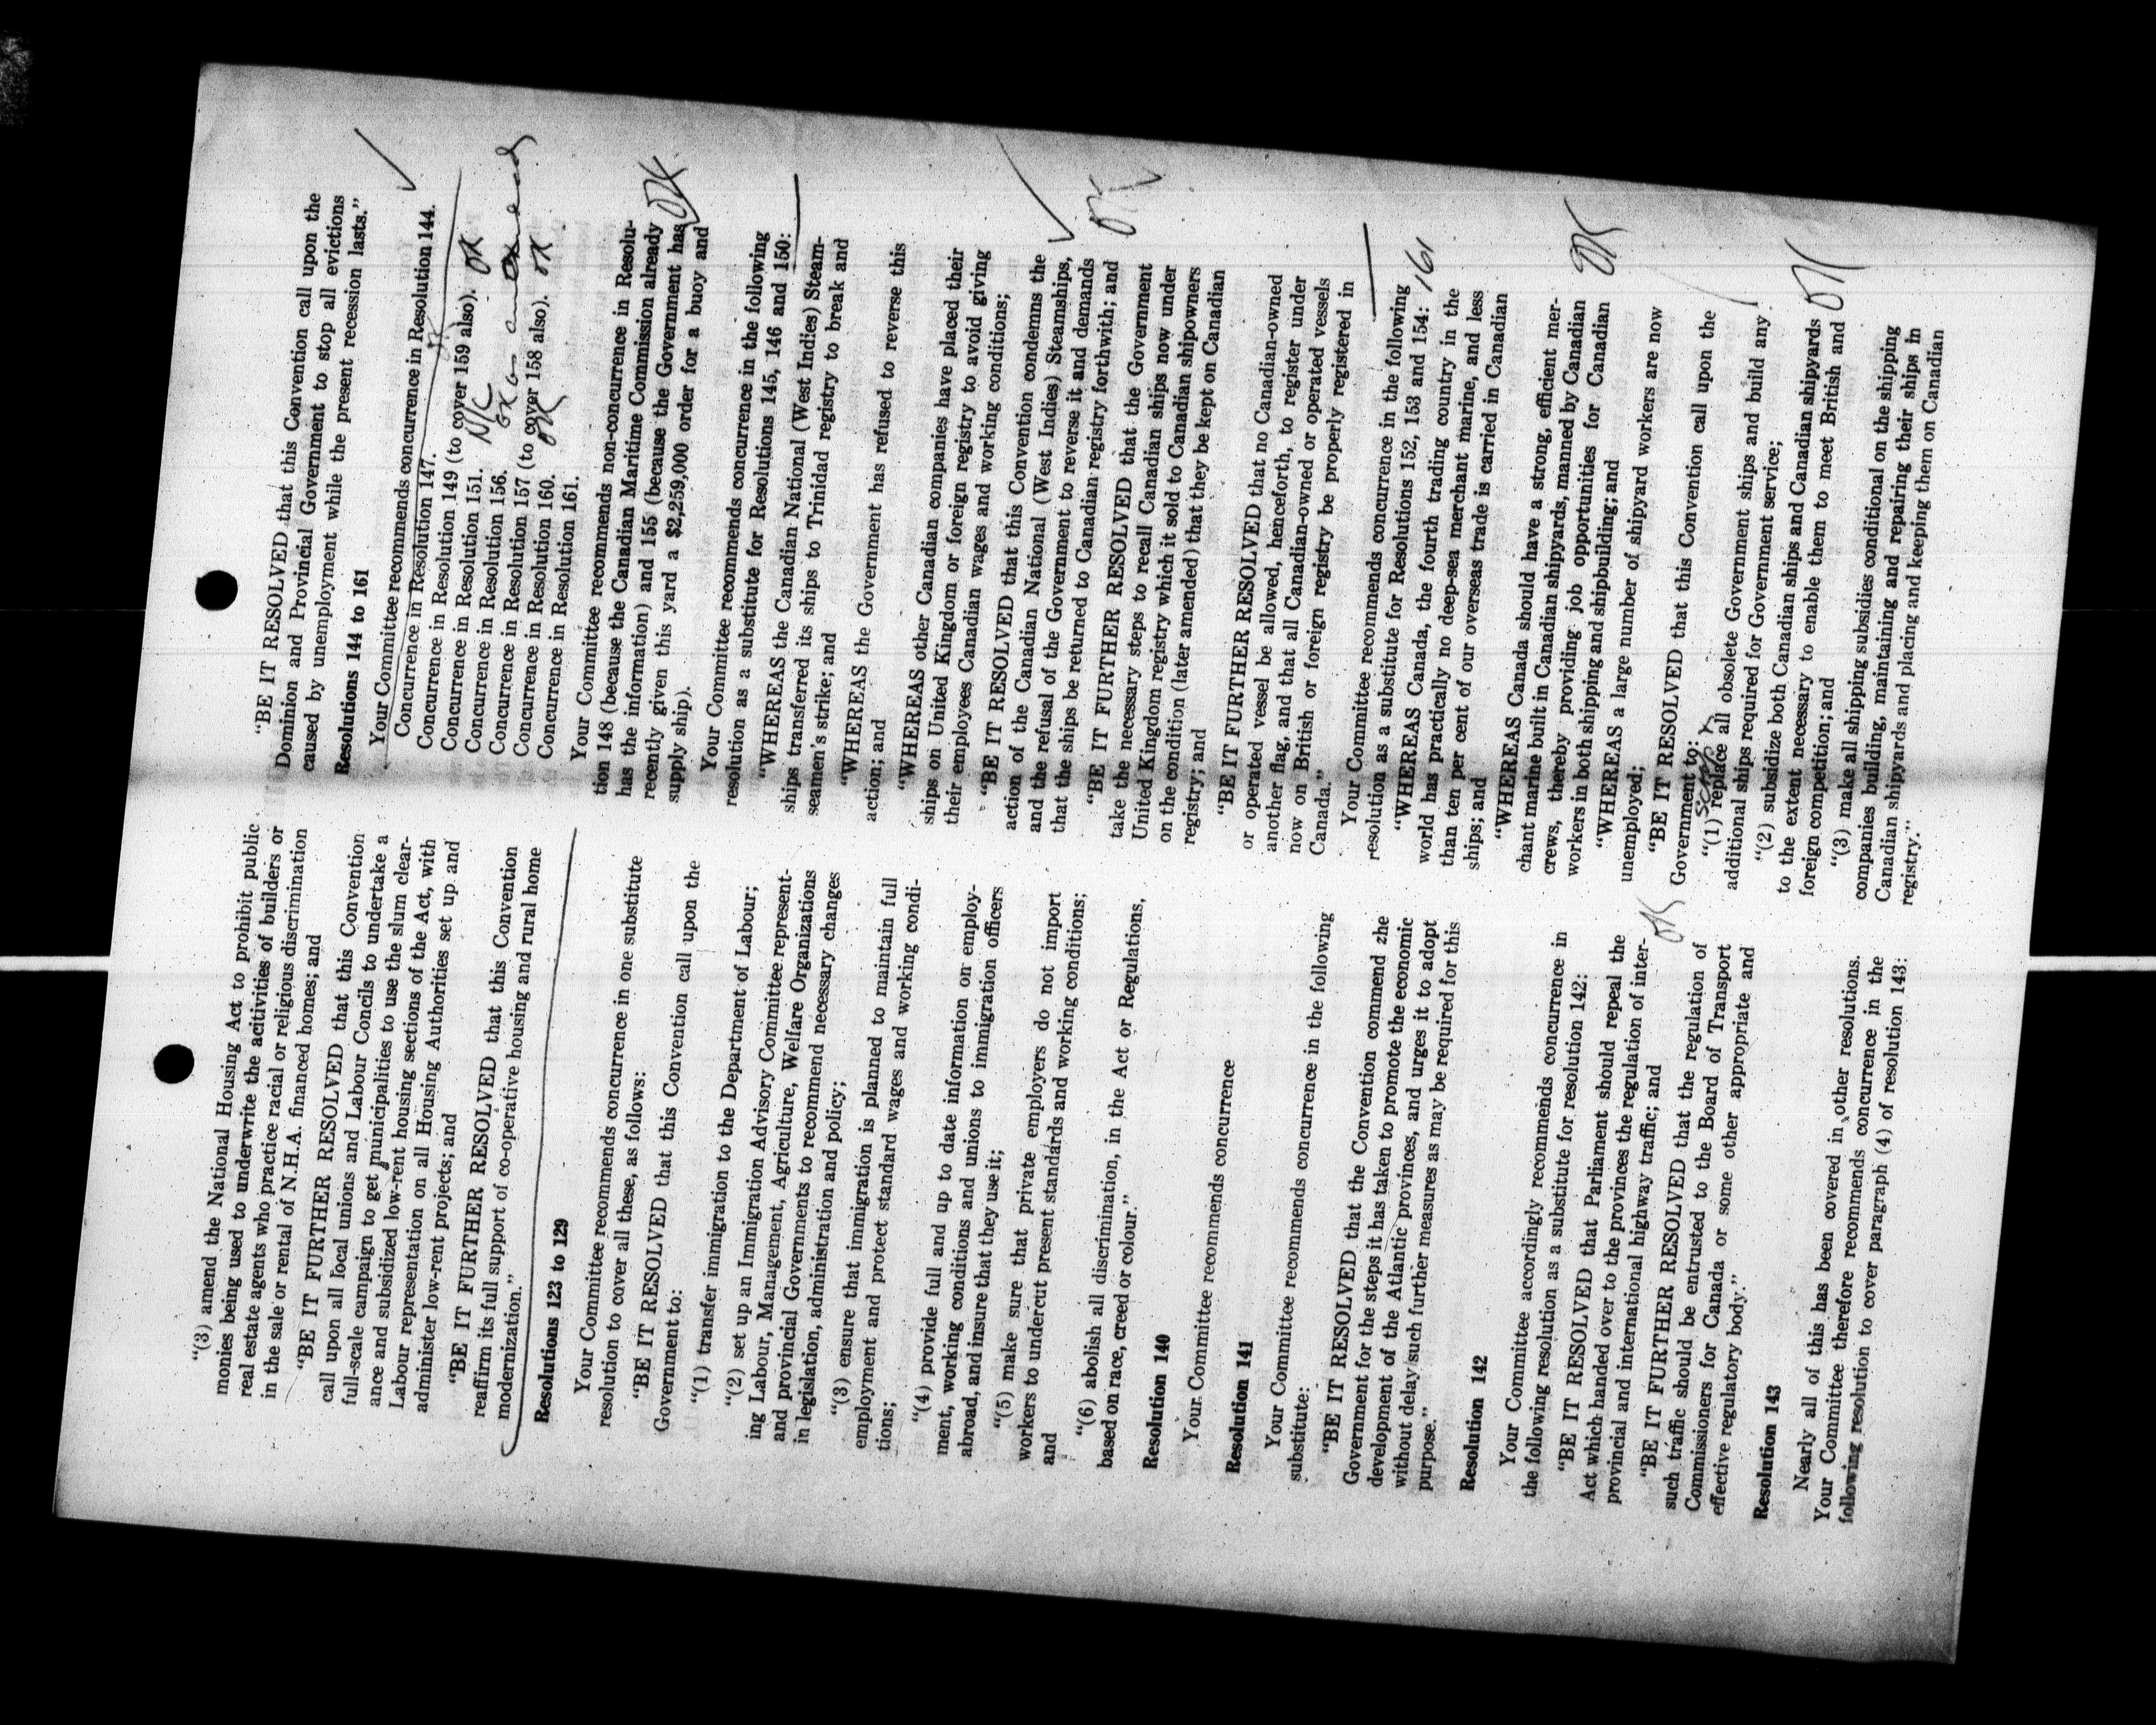 "(3) amend the National Housing Act to prohibit public
monies being used to underwrite the acitivities of builders or
real estate agents who practice racial or religious discrimination
in the sale or rental of N.H.A. financed homes; and
"BE IT FURTHER RESOLVED that this Convention
call upon all local unions and Labour Concils to undertake a
full-scale campaign to get municipalities to use the slum clear-
ance and subsidized low-rent housing sections of the Act, with
Labour representation on all Housing Authorities set up and
administer low-rent projects; and
"BE IT FURTHER RESOLVED that this Convention
reaffirm its full support of co-operative housing and rural home
modernization."
Resolutions 123 to 129
Your Committee recommends concurrence in one substitute
resolution to cover all these, as follows:
"BE IT RESOLVED that this Convention call upon the
Government to:
"(1) transfer immigration to the Department of Labour;
"(2) set up an Immigration Advisory Committee represent-
ing Labour, Management, Agriculture, Welfare Organizations
and provincial Governments to recommend necessary changes
in legislation, administration and policy;
"(3) ensure that immigration is planned to maintain full
employment and protect standard wages and working condi-
tions;
"(4) provide full and up to date information on employ-
ment, working conditions and unions to immigration officers
abroad, and insure that they use it;
"(5) make sure that private employers do not import
workers to undercut present standards and working conditions;
and
"(6) abolish all discrimination, in the Act or Regulations,
based on race, creed or colour."
Resolution 140
Your Committee recommends concurrence
Resolution 141
Your Committee recommends concurrence in the following
substitute:
"BE IT RESOLVED that the Convention commend zhe
Government for the steps it has taken to promote the economic
development of the Atlantic provinces, and urges it to adopt
without delay such further measures as may be required for this
purpose."
Resolution 142
Your Committee accordingly recommends concurrence in
the following resolution as a substitute for resolution 142:
"BE IT RESOLVED that Parliament should repeal the
Act which handed over to the provinces the regulation of inter-
provincial and international highway traffic; and
"BE IT FURTHER RESOLVED that the regulation of
such traffic should be entrusted to the Board of Transport
Commissioners for Canada or some other appropriate and
effective regulatory body."
OK
Resolution 143
Nearly all of this has been covered in other resolutions.
Your Committee therefore recommends concurrence in the
following resolution to cover paragraph (4) of resolution 143:
"BE IT RESOLVED that this Convention call upon the
Dominion and Provincial Government to stop all evictions
caused by unemployment while the present recession lasts."
Resolutions 144 to 161
Your Committee recommends concurrence in Resolution 144.
Concurrence in Resolution 147. OK
Concurrence in Resolution 149 (to cover 159 also). OK
Concurrence in Resolution 151. N/C
Concurrence in Resolution 156. OK
Concurrence in Resolution 157 (to cover 158 also). OK
Concurrence in Resolution 160. OK
Concurrence in Resolution 161.
Your Committee recommends non-concurrence in Resolu-
tion 148 (because the Canadian Maritime Commission already
has the information) and 155 (because the Government has
recently given this yard a $2,259,000 order for a buoy and
supply ship).
OK
Your Committee recommends concurrence in the following
resolution as a substitute for Resolutions 145, 146 and 150:
"WHEREAS the Canadian National (West Indies) Steam-
ships transferred its ships to Trinidad registry to break and
seamen's strike; and
"WHEREAS the Government has refused to reverse this
action; and
"WHEREAS other Canadian companies have placed their
ships on United Kingdom or foreign registry to avoid giving
their employees Canadian wages and working conditions;
"BE IT RESOLVED that this Convention condemns the
action of the Canadian National (West Indies) Steamships,
and the refusal of the Government to reverse it and demands
that the ships be returned to Canadian registry forthwith; and
OK
"BE IT FURTHER RESOLVED that the Government
take the necessary steps to recall Canadian ships now under
United Kingdom registry which it sold to Canadian shipowners
on the condition (later amended) that they be kept on Canadian
registry; and
"BE IT FURTHER RESOLVED that no Canadian-owned
or operated vessel be allowed, henceforth, to register under
another flag, and that all Canadian-owned or operated vessels
now on British or foreign registry be properly registered in
Canada."
Your Committee recommends concurrence in the following
resolution as a substitute for Resolutions 152, 153 and 154: 161
"WHEREAS Canada, the fourth trading country in the
world has practically no deep-sea merchant marine, and less
than ten per cent of our overseas trade is carried in Canadian
ships; and
"WHEREAS Canada should have a strong, efficient mer-
chant marine built in Canadian shipyards, manned by Canadian
crews, thereby providing job opportunities for Canadian
workers in both shipping and shipbuilding; and
OK
"WHEREAS a large number of shipyard workers are now
unemployed;
"BE IT RESOLVED that this Convention call upon the
Government to:
scrap &
"(1) replace all obsolete Government ships and build any
additional ships required for Government service;
"(2) subsidize both Canadian ships and Canadian shipyards
to the extent necessary to enable them to meet British and
foreign competition; and
OK
"(3) make all shipping subsidies conditional on the shipping
companies building, maintaining and repairing their ships in
Canadian shipyards and placing and keeping them on Canadian
registry."